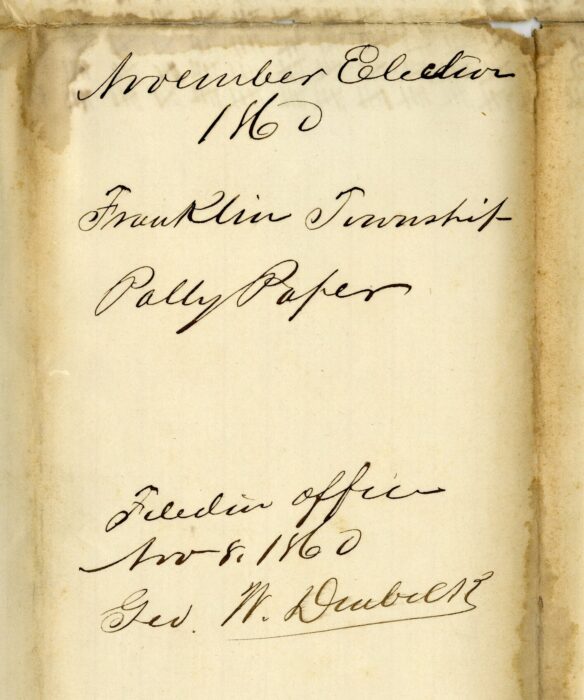 November Election
1860
Franklin Township
Pally Paper
Filed in office
Nov 8, 1860
Geo. W.